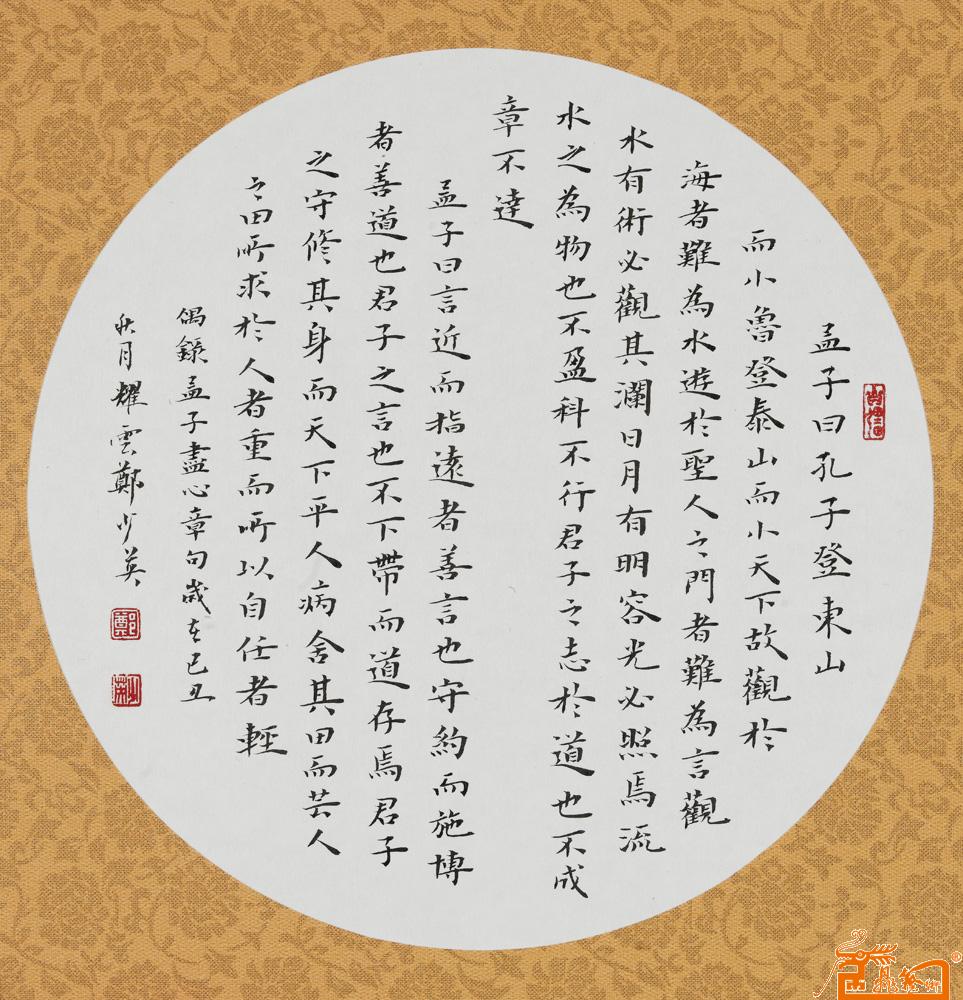 孟子曰孔子登東山
而小魯登泰山而小天下故觀於
海者難為水遊於聖人之門者難為言觀
水有術必觀其瀾日月有明容光必照焉流
水之為物也不盈科不行君子之志於道也不成
章不達
孟子曰言近而指遠者善言也守約而施博
者善道也君子之言也不下帶而道存焉君子
之守修其身而天下平人病舍其田而芸人
之田所求於人者重而所以自任者輕
偶錄孟子盡心章句歲在己丑
秋月耀雲鄭少英
鄭